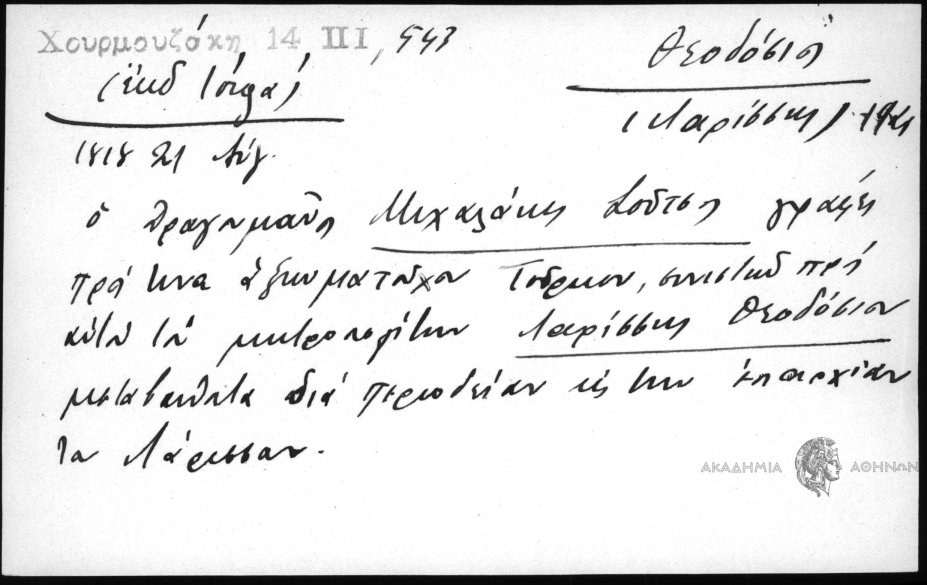 Χουρμουζάκη 14 III, 543
Θεοδόσιος
(ἔκδ
(Λαρίσσης)
1818 21 Αὐγ.
ὁ Δραγουμᾶνος Μιχαλάκης Σοῦτσος γράφει
πρός τινα ἀξιωματοῦχον Τοῦρκον, συνιστῶν πρός
αὐτόν τόν μητροπολίτην Λαρίσσης Θεοδόσιον
μεταβαίνοντα διά περιοδείαν εἰς τήν ἐπαρχίαν
του Λάρισσαν.
ΑΚΑΔΗΜΙΑ ΑΘΗΝΩΝ